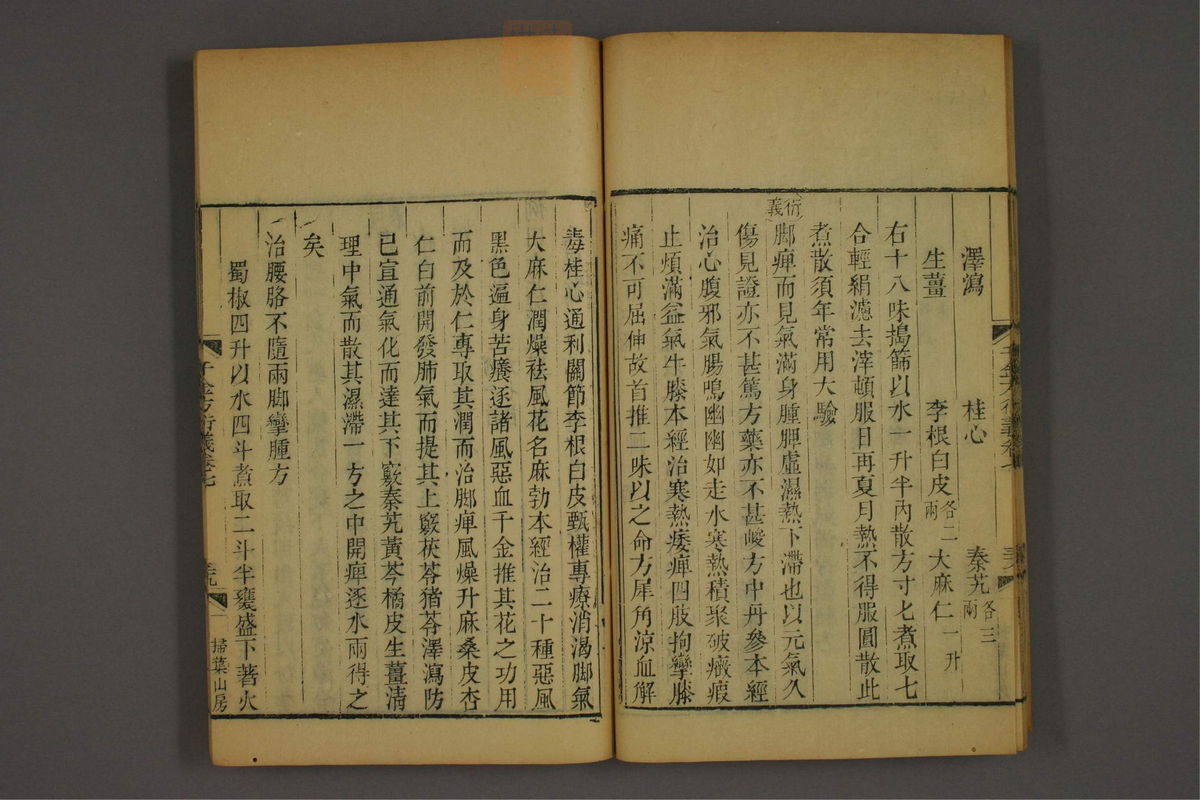 澤瀉 桂心 秦艽各三兩
生薑 李根白皮各二兩 大麻仁一升
右十八味搗篩以水一升半內散方寸七煮取七
合輕絹濾去滓頓服日再夏月熱不得服圓散此
煮散須年常用大驗
衍義
脚痺而見氣滿身腫脾虛濕熱下滯也以元氣久
傷見證亦不甚篤方藥亦不甚峻方中丹參本經
治心腹邪氣腸鳴幽幽如走水寒熱積聚破癥瘕
止煩滿益氣牛膝本經治寒熱痿痺四肢拘攣膝
痛不可屈伸故首推二味以之命方犀角涼血解
毒桂心通利關節李根白皮甄權專療消渴脚氣
大麻仁潤燥祛風花名麻勃本經治二十種惡風
黑色遍身苦癢逐諸風惡血千金推其花之功用
而及於仁專取其潤而治脚痺風燥升麻桑皮杏
仁白前開發肺氣而提其上竅茯苓豬苓澤瀉防
已宣通氣化而達其下竅秦艽黃芩橘皮生薑清
理中氣而散其濕滯一方之中開痺逐水兩得之
矣
治腰胳不隨兩脚攣腫方
蜀椒四升以水四斗煮取二斗半甕盛下著火
千金方衍義卷七
掃葉山房